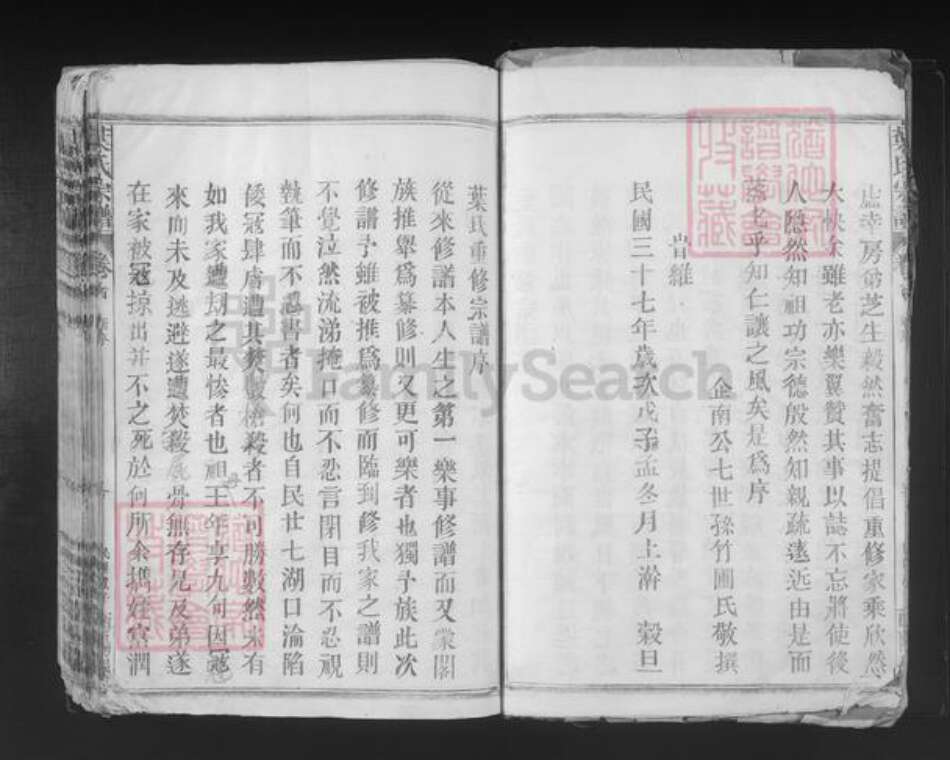 幸房弟芝生毅然奮志提倡重修家乘欣然
大快余雖老亦樂翼贊其事以誌不忘將使後
人隱然知祖功宗德殷然知親疏遠近由是而
乎知仁讓之風矣是為序
金南公七世孫竹圃氏敬撰
旹維
民國三十七年歲次戊子孟冬月上澣 穀旦
葉氏重修宗譜序
從來修譜本人生之第一樂事修譜而又蒙閤
族推舉為纂修則又更可樂者也獨予族此次
修譜予雖被推為纂修而臨到修我家之譜則
不覺泣然流涕掩口而不忍言閉目而不忍視
執筆而不忍書者矣何也自民廿七湖口淪陷
倭寇肆虐遭其焚殺者不可勝數然未有
如我家遭刧之最慘者也祖王年享九旬因寇
來而未及逃避遂遭焚殺屍骨無存兄及弟遂
在家被寇掠出并不之死於何所余媽姪賓潤
葉氏宗譜 卷首
葉氏宗譜
FamilySearch